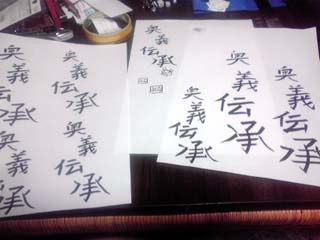 奥義
伝承
奥義
伝承
奥義
伝承
奥義
伝承
奥義
伝承
奥義
伝承
奥義
伝承
奥義
伝承